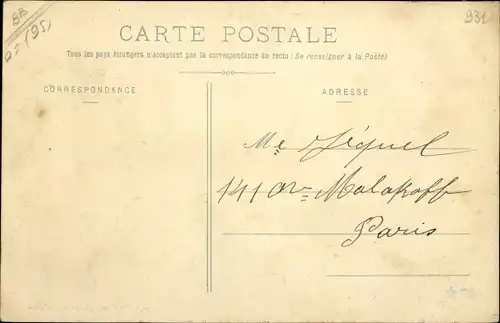 BB
(95)
931
CARTE POSTALE
Tous les pays étrangers n'acceptent pas la correspondance au recto (Se renseigner à la Poste)
CORRESPONDANCE
ADRESSE
Me Séquel
141 Ave Malakoff
Paris